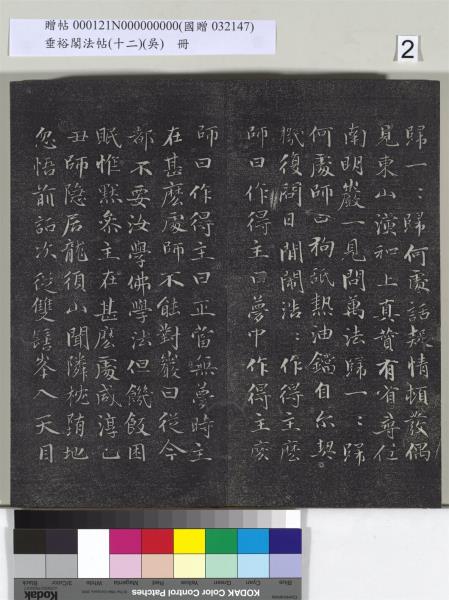 贈帖 000121N000000000(國贈 032147)
垂裕閣法帖(十二)(吳) 冊
2
歸一:歸何處話疑情頓發偶
見東山演和上真賛有省尋住
南明巖一見問萬法歸一:歸
何處師曰狗舐熱油鐺自尒契
後問日間閙浩:作得主麼
師曰作得主曰夢中作得主麼
師曰作得主曰正當無夢時主
在甚麼處師不能對巖曰從今
都不要汝學佛學法但饑飯困
眠惟黙叅主在甚麼處咸淳己
丑師隐居龍須山聞隣枕墮地
忽悟前話次從雙髻峯入天目
Blue
Cyan
Green
Yellow
Red
Magenta
White
3/Color
Black
Kodak Color Control Patches
Kodak